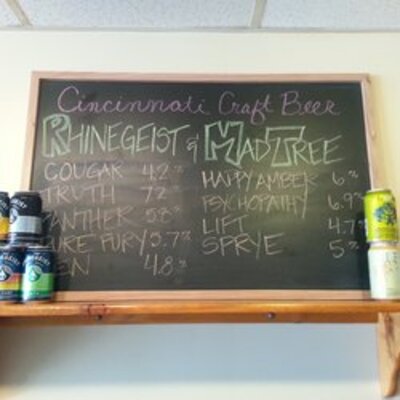 Cincinnati Craft Beer
RHINEGEIST & MADTREE
COUGAR 4.2%
TRUTH 7.2%
PANTHER 5.8%
PURE FURY 5.7%
ZEN 4.8%
HAPPY AMBER 6%
PSYCHOPATHY 6.9%
LIFT 4.7%
SPRYE 5%